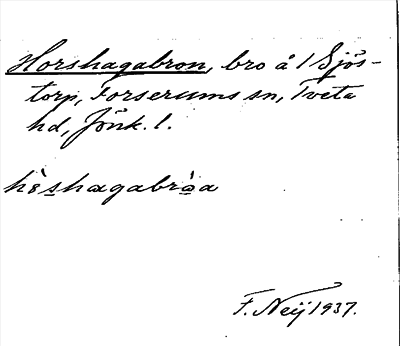 Horshagabron, bro å 1 Sjös-
torp, Forserums sn, Tveta
hd, Jönk. l.
hèshagabròa
F. Neij 1937.